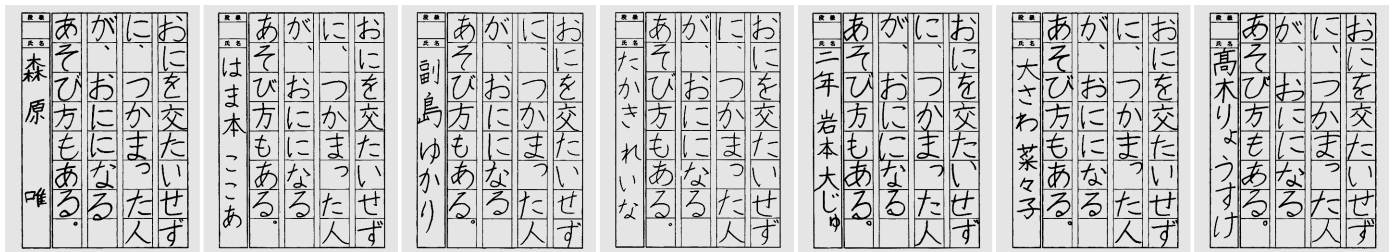 おにを交たいせず
に、つかまった人
が、おにになる
あそび方もある。
段級
氏名
森原 唯
おにを交たいせず
に、つかまった人
が、おにになる
あそび方もある。
段級
氏名
はま本 ここあ
おにを交たいせず
に、つかまった人
が、おにになる
あそび方もある。
段級
氏名
副島ゆかり
おにを交たいせず
に、つかまった人
が、おにになる
あそび方もある。
段級
氏名
たかき れいな
おにを交たいせず
に、つかまった人
が、おにになる
あそび方もある。
段級
氏名
三年 岩本大じゅ
おにを交たいせず
に、つかまった人
が、おにになる
あそび方もある。
段級
氏名
大さわ 菜々子
おにを交たいせず
に、つかまった人
が、おにになる
あそび方もある。
段級
氏名
髙木りょうすけ